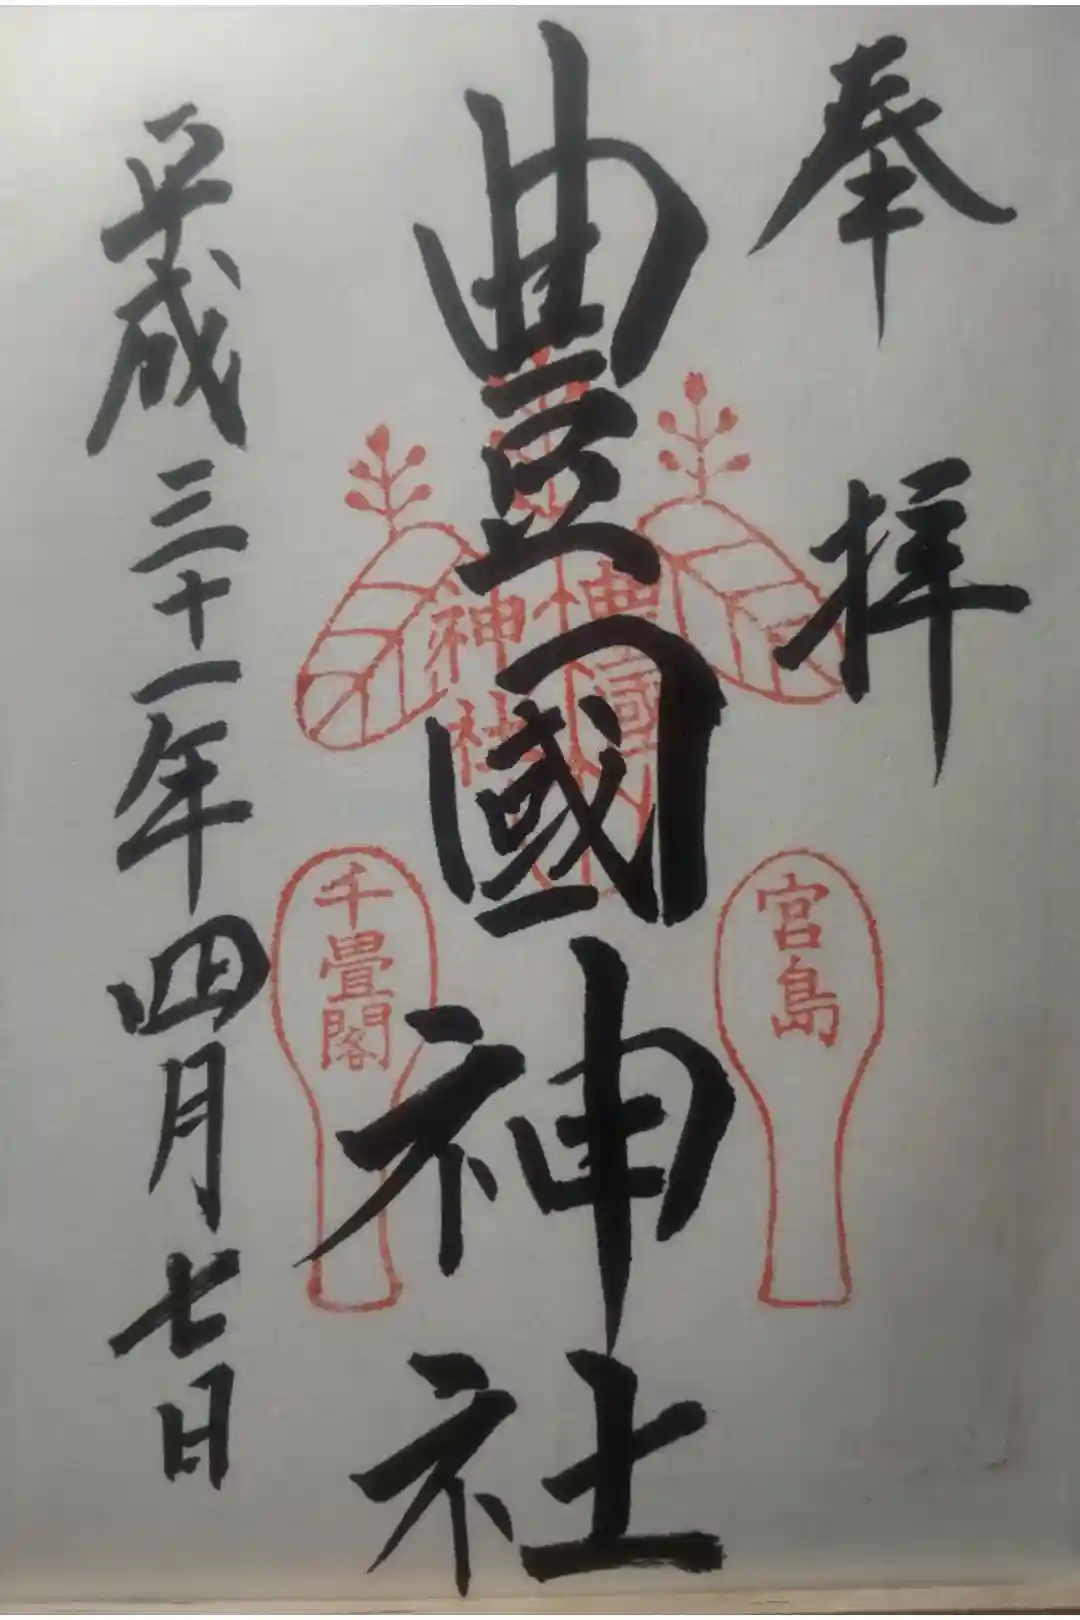 奉拝
豊國神社
豊國
神社
宮島
千畳閣
平成三十一年四月七日